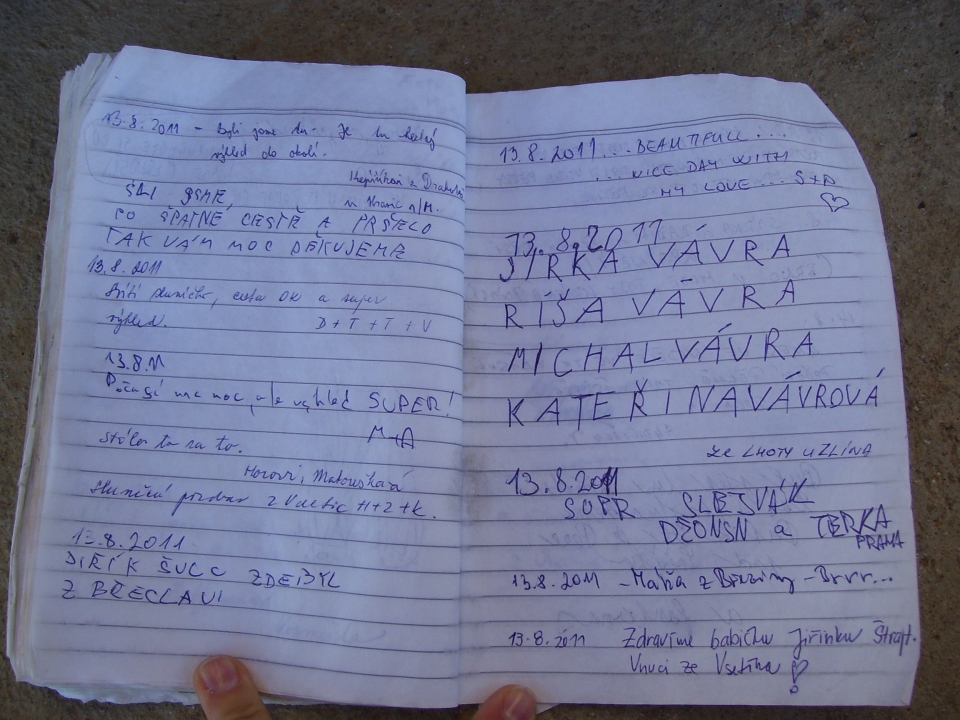 13.8.2011 - Byli jsme tu. Je tu hezký
výhled do okolí.
ŠLI JSME,
PO ŠPATNÉ CESTĚ A PRŠELO
TAK VÁM MOC DĚKUJEME
13.8.2011
Svítí sluníčko, cesta OK a super
výhled. D + T + T + V
13.8.11
Počasí nic moc, ale výhled SUPER!
M+A
Stálo to za to.
Horovi, Matouškovi
z Valtic H+Z+K.
13.8.2011
JIŘÍK ŠULC ZDE BYL
Z BŘECLAVI
13.8.2011... BEAUTIFULL...
... NICE DAY WITH
MY LOVE... S+P
13.8.2011
JIRKA VÁVRA
RÍŠA VÁVRA
MICHAL VÁVRA
KATEŘINA VÁVROVÁ
ZE LHOTY U ZLÍNA
13.8.2011
SUPR SLEJVÁK
DŽONSN a TERKA
PRAHA
13.8.2011 - Máňa z Březiny - Brrr...
13.8.2011 Zdravíme babičku Jiřinku Štrajt.
Vnuci ze Vsetína!